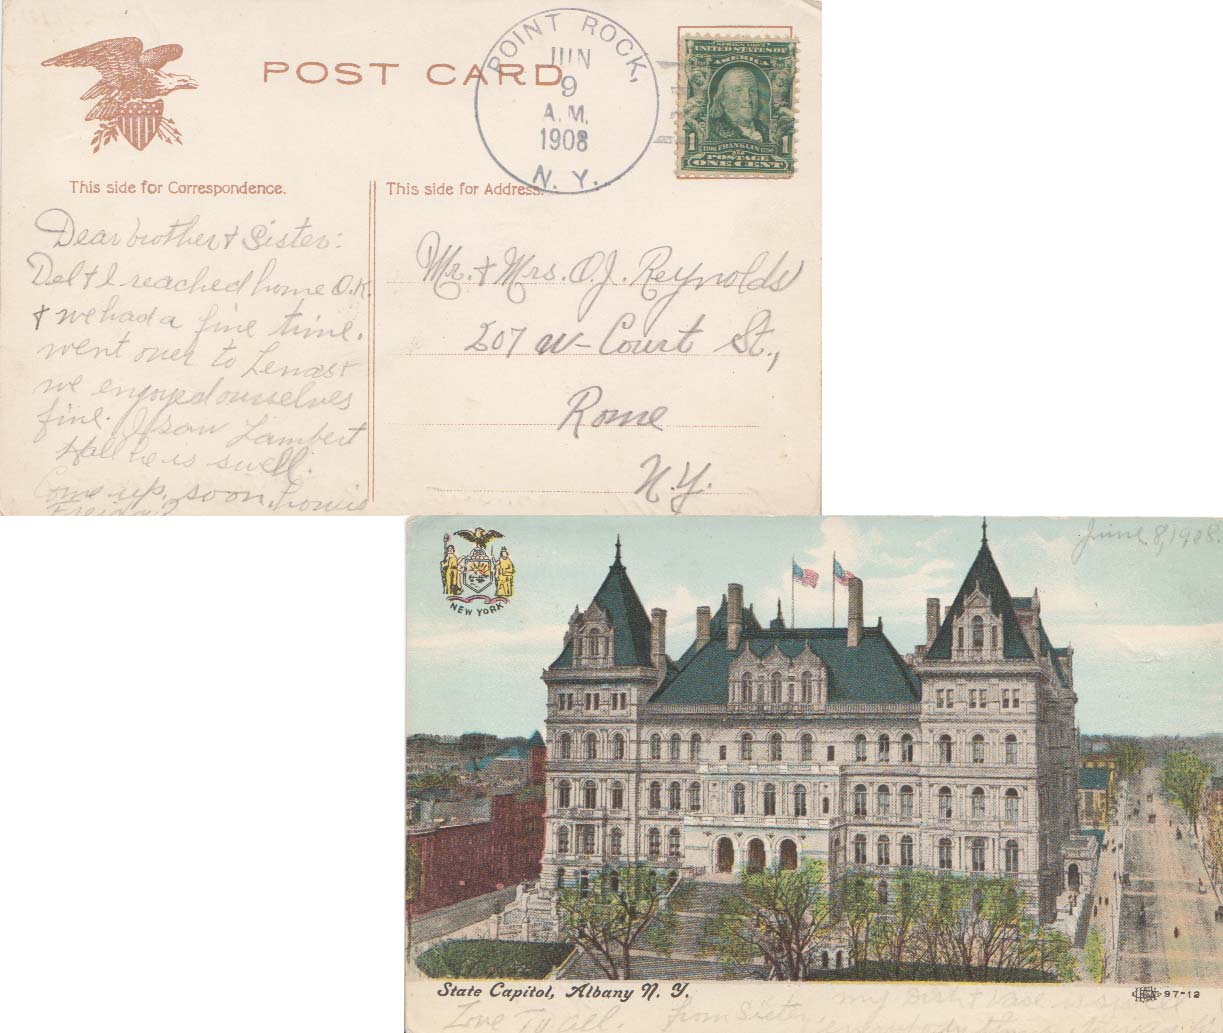 POST CARD
POINT ROCK,
JUN
9
A.M.
1908
N. Y.
SERIES 1902
UNITED STATES OF
AMERICA
1706 FRANKLIN 1790
1 1
POSTAGE
ONE CENT
This side for Correspondence.
Dear brother & Sister:
Del & I reached home O.K.
& we had a fine time.
went over to Lenas &
we enjoyed ourselves
fine. I saw Lambert
Hall he is swell.
Come up soon. Louie
Friday?
This side for Address.
Mr. & Mrs. O.J. Reynolds
207 W- Court St.,
Rome
N.Y.
June 8, 1908.
NEW YORK
State Capitol, Albany N. Y.
97-12
Love To all. from Sister. my